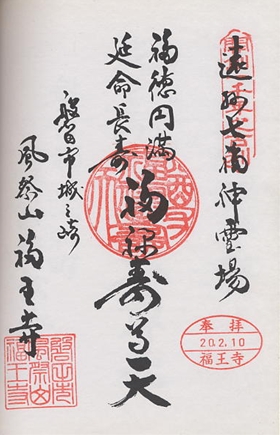 遠州七福神霊場
福徳円満
延命長寿
福禄寿尊天
磐田市城之崎
風祭山福王寺
奉拝
20.2.10
福王寺